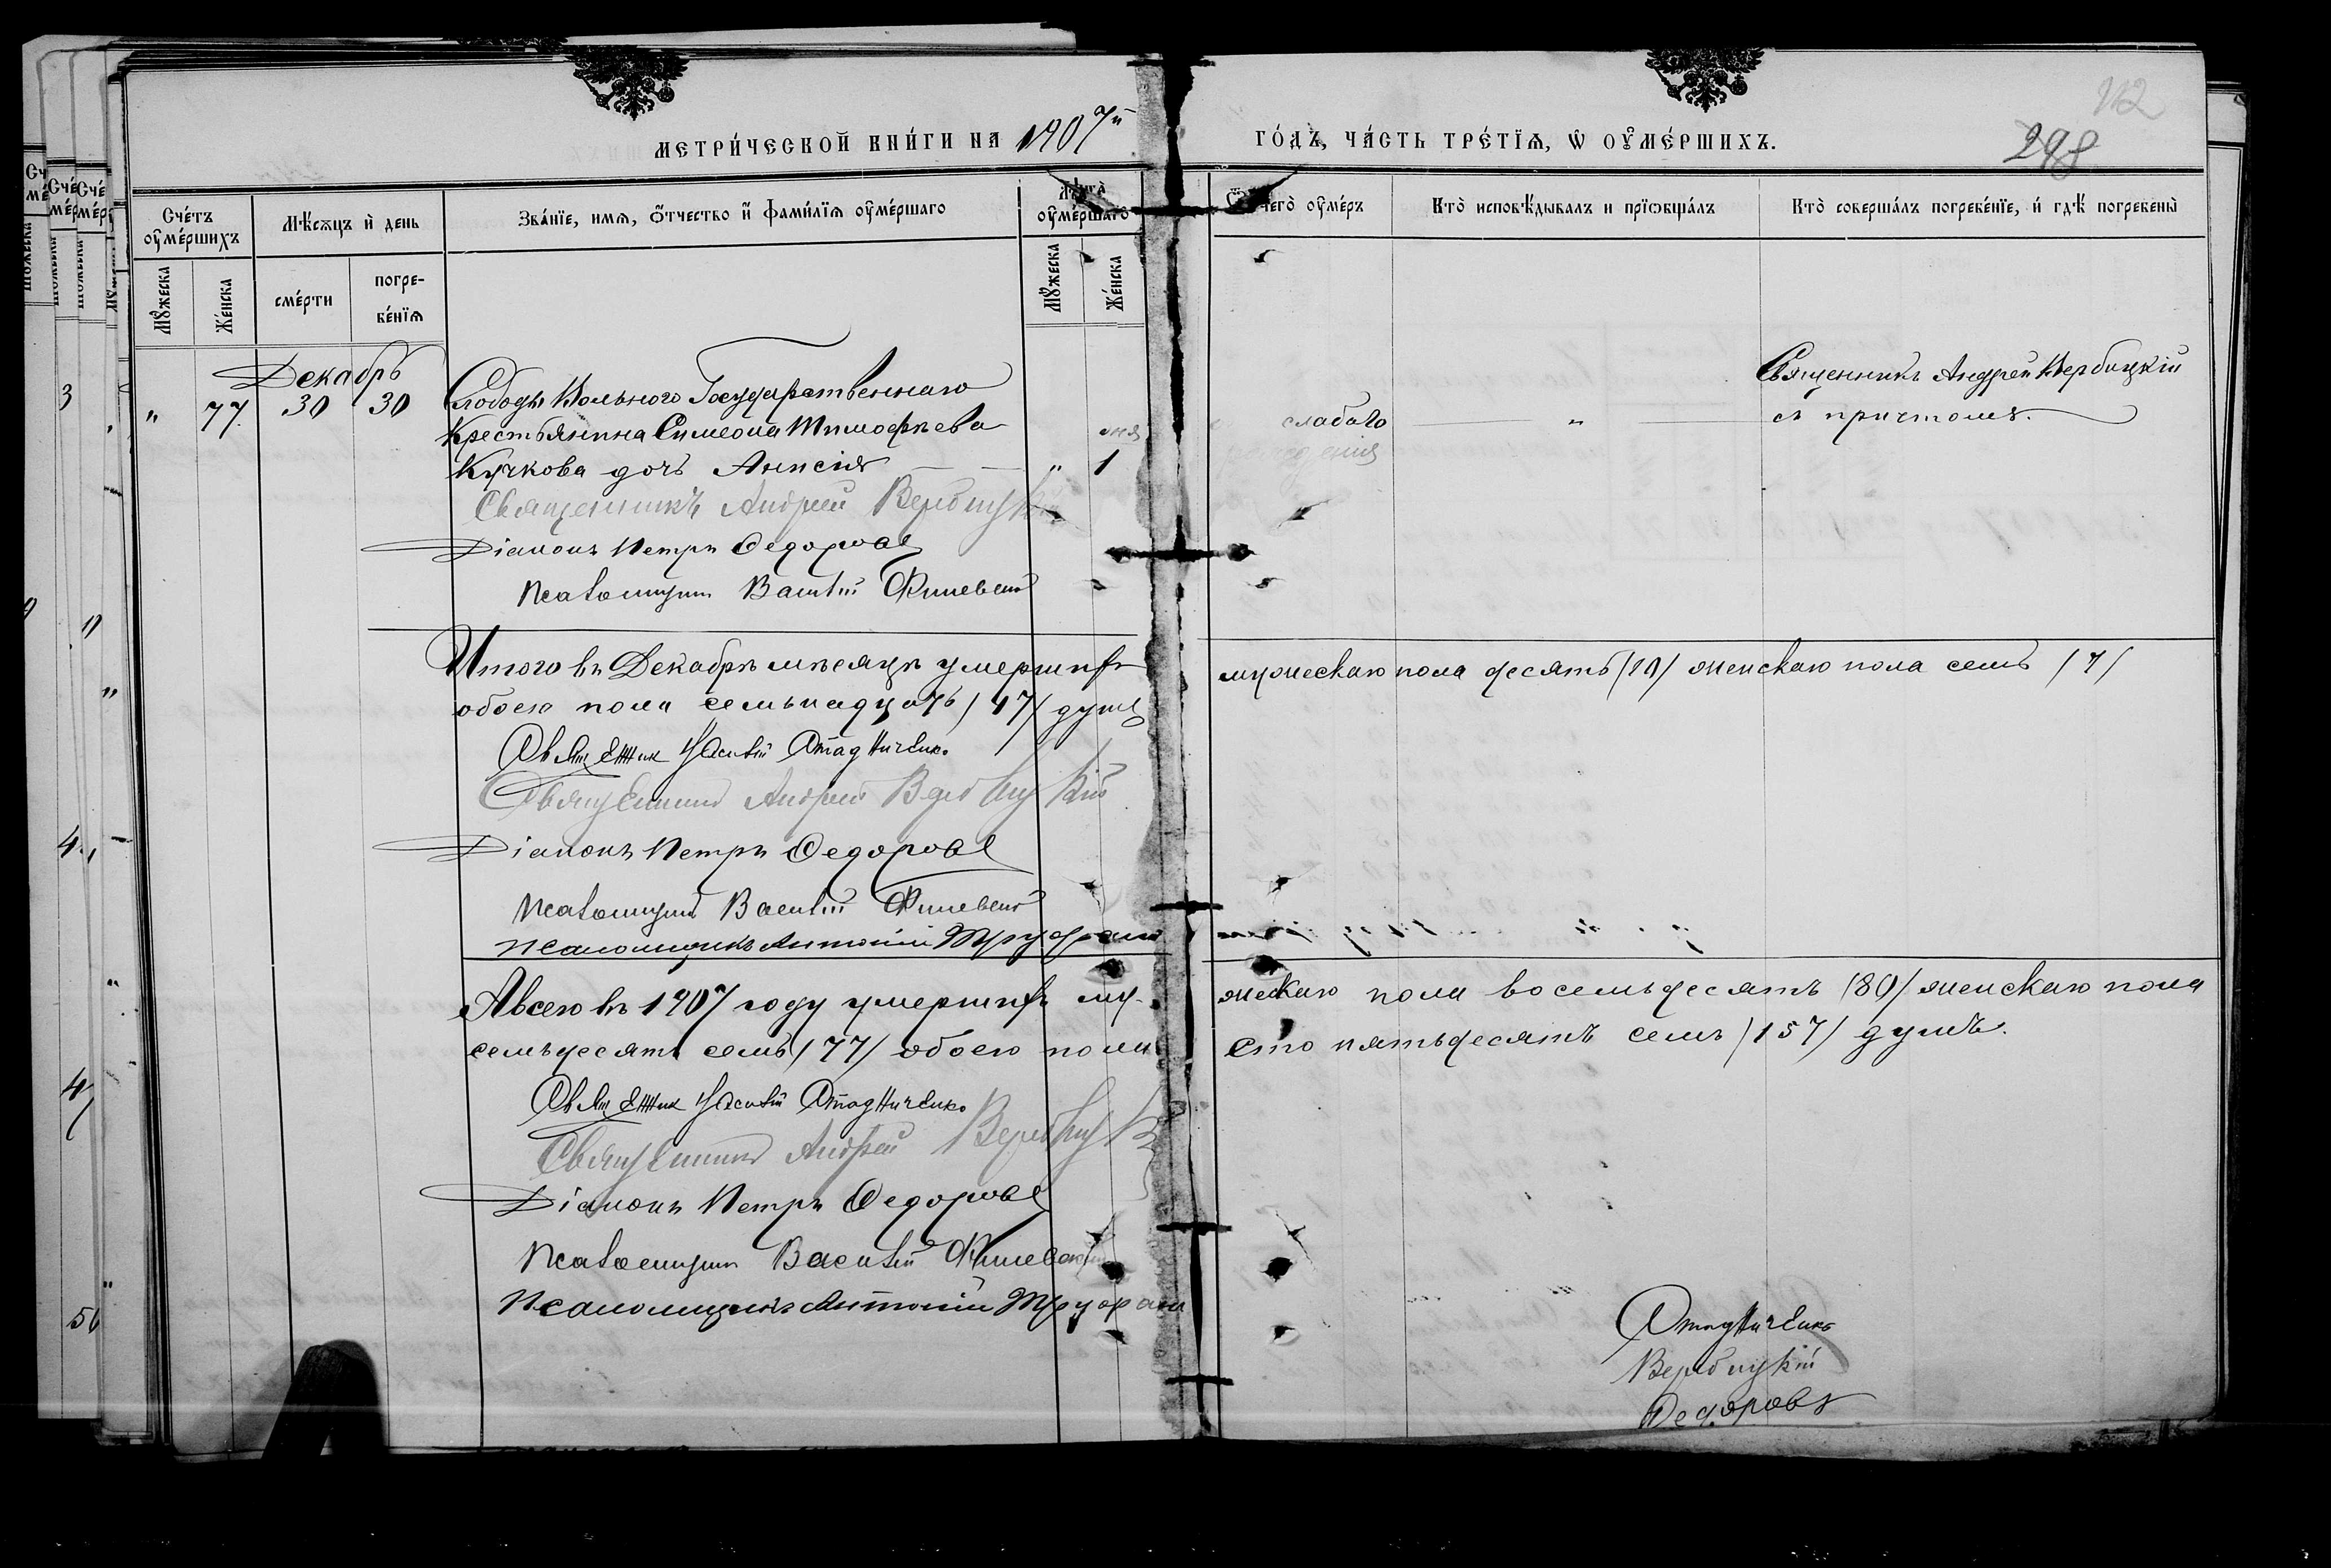 МЕТРИ́ЧЕСКОЙ КНИ́ГИ НА 1907й
ГО́ДЪ, ЧА́СТЬ ТРЕ́ТЇѦ, Ѡ ОУМЕ́РШИХЪ.
112
298
Сче́тъ оуме́ршихъ
Мѣ́сѧцъ и день
Зва́нїе, имѧ, о́тчество и фами́лїѧ оуме́ршаго
Лѣта̀ оуме́ршаго
Ѿ чего̀ оу́меръ
Кто̀ исповѣ́дывалъ и прїѡбща́лъ
Кто̀ соверша́лъ погребе́нїе, и гдѣ̀ погребены̀
Мꙋжеска
Же́нска
сме́рти
погребе́нїѧ
Мꙋжеска
Же́нска
Декабрь
" 77. 30 30 Слободы Вольного Государственнаго
Крестьянина Симеона Тимофѣева
Кучкова дочь Анисія " 1 дня
слабаго
рожденія
"
Священникъ Андрей Вербицкій
съ причтомъ.
Священникъ Андрей Вербицкій
Діаконъ Петръ Ѳедоровъ
Псаломщикъ Василій
Итого въ Декабрѣ мѣсяцѣ умершихъ мужескаго пола десять /10/ женскаго пола семь /7/
обоего пола семьнадцать /17/ душъ
Священник Стадниченко.
Священникъ Андрей Вербицкій
Діаконъ Петръ Ѳедоровъ
Псаломщикъ Василій
Псаломщикъ Антоній
А всего въ 1907 году умершихъ мужескаго пола восемьдесятъ /80/ женскаго пола
семьдесятъ семь /77/ обоего пола сто пятьдесятъ семь /157/ душъ.
Священник Стадниченко.
Священникъ Андрей Вербицк
Діаконъ Петръ Ѳедоровъ
Псаломщикъ Василій
Псаломщикъ Антоній
Стадниченко
Вербицкій
Ѳедоровъ